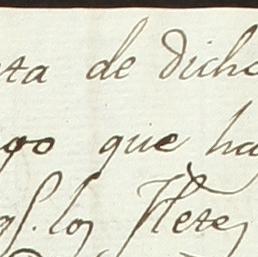 ta de dicho
go que ha
los Here